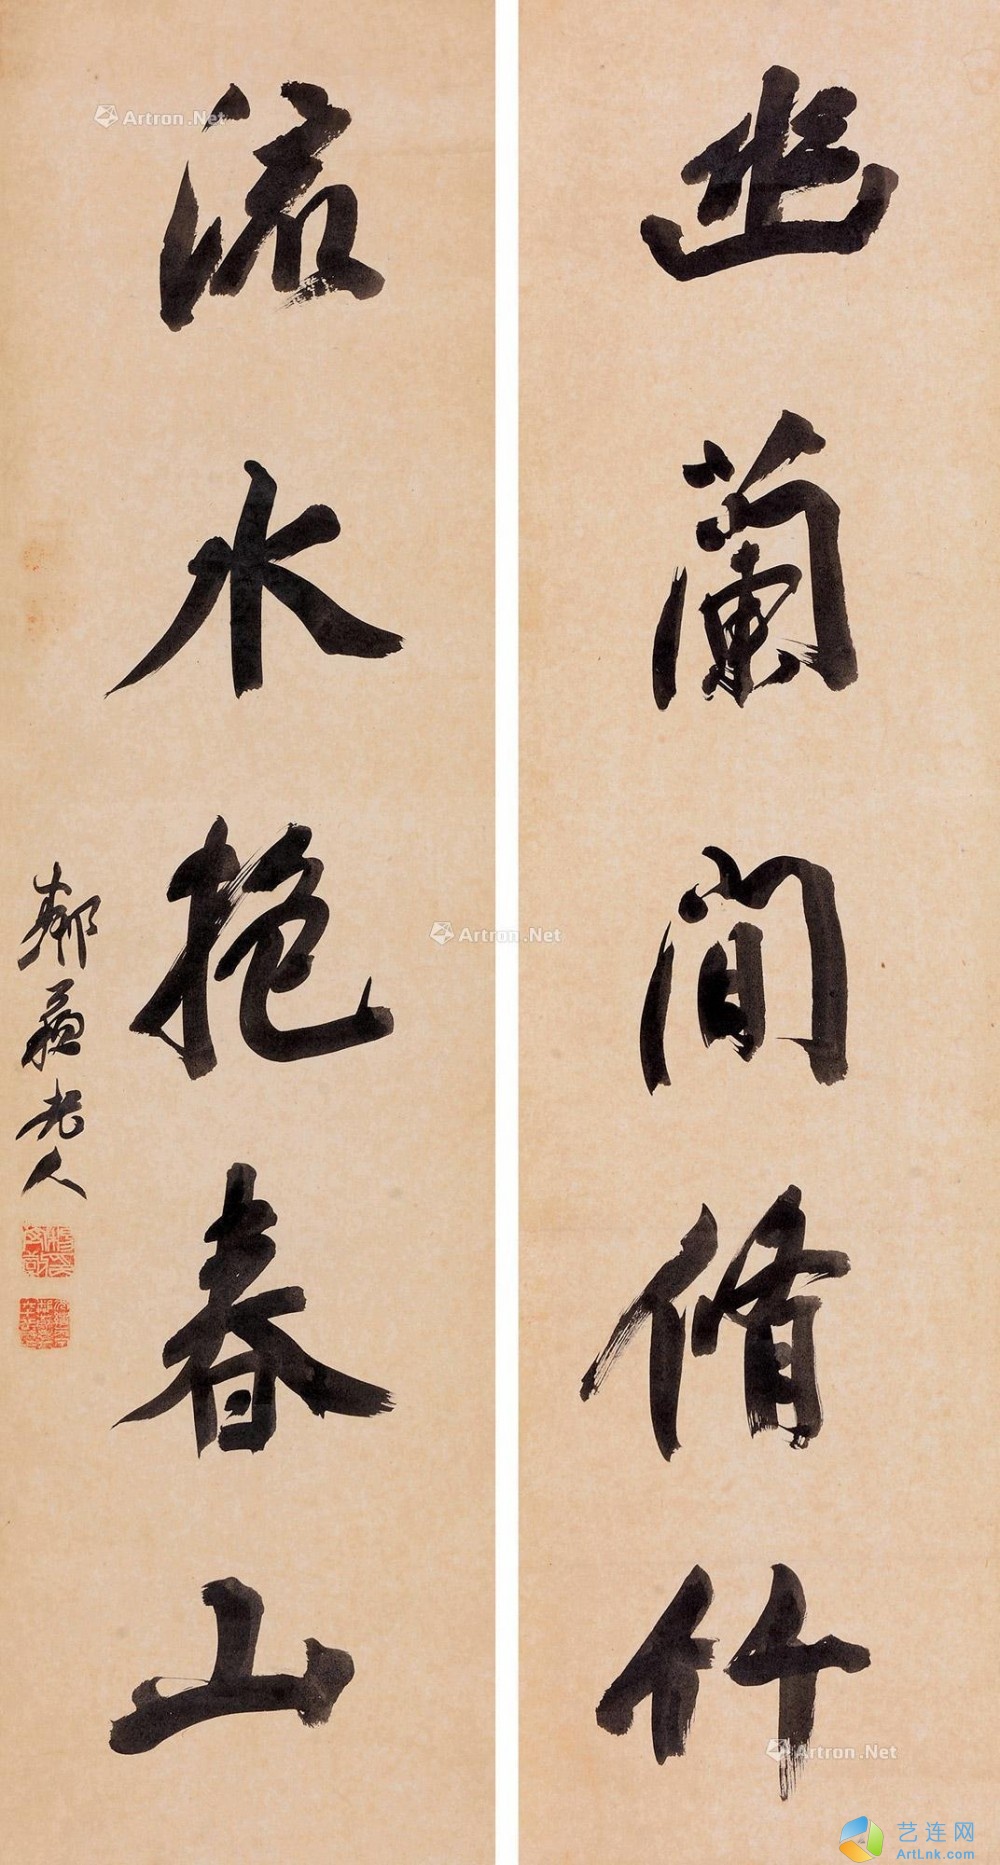 幽蘭間脩竹
流水抱春山
鄰蘇老人
Artron.Net
Artron.Net
Artron.Net
艺连网
ArtLnk.com